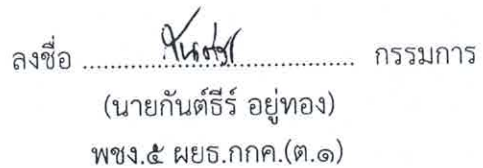 ลงชื่อ ........................................ กรรมการ
(นายกันต์ธีร์ อยู่ทอง)
พชง.๕ ผยธ.กกค.(ต.๑)